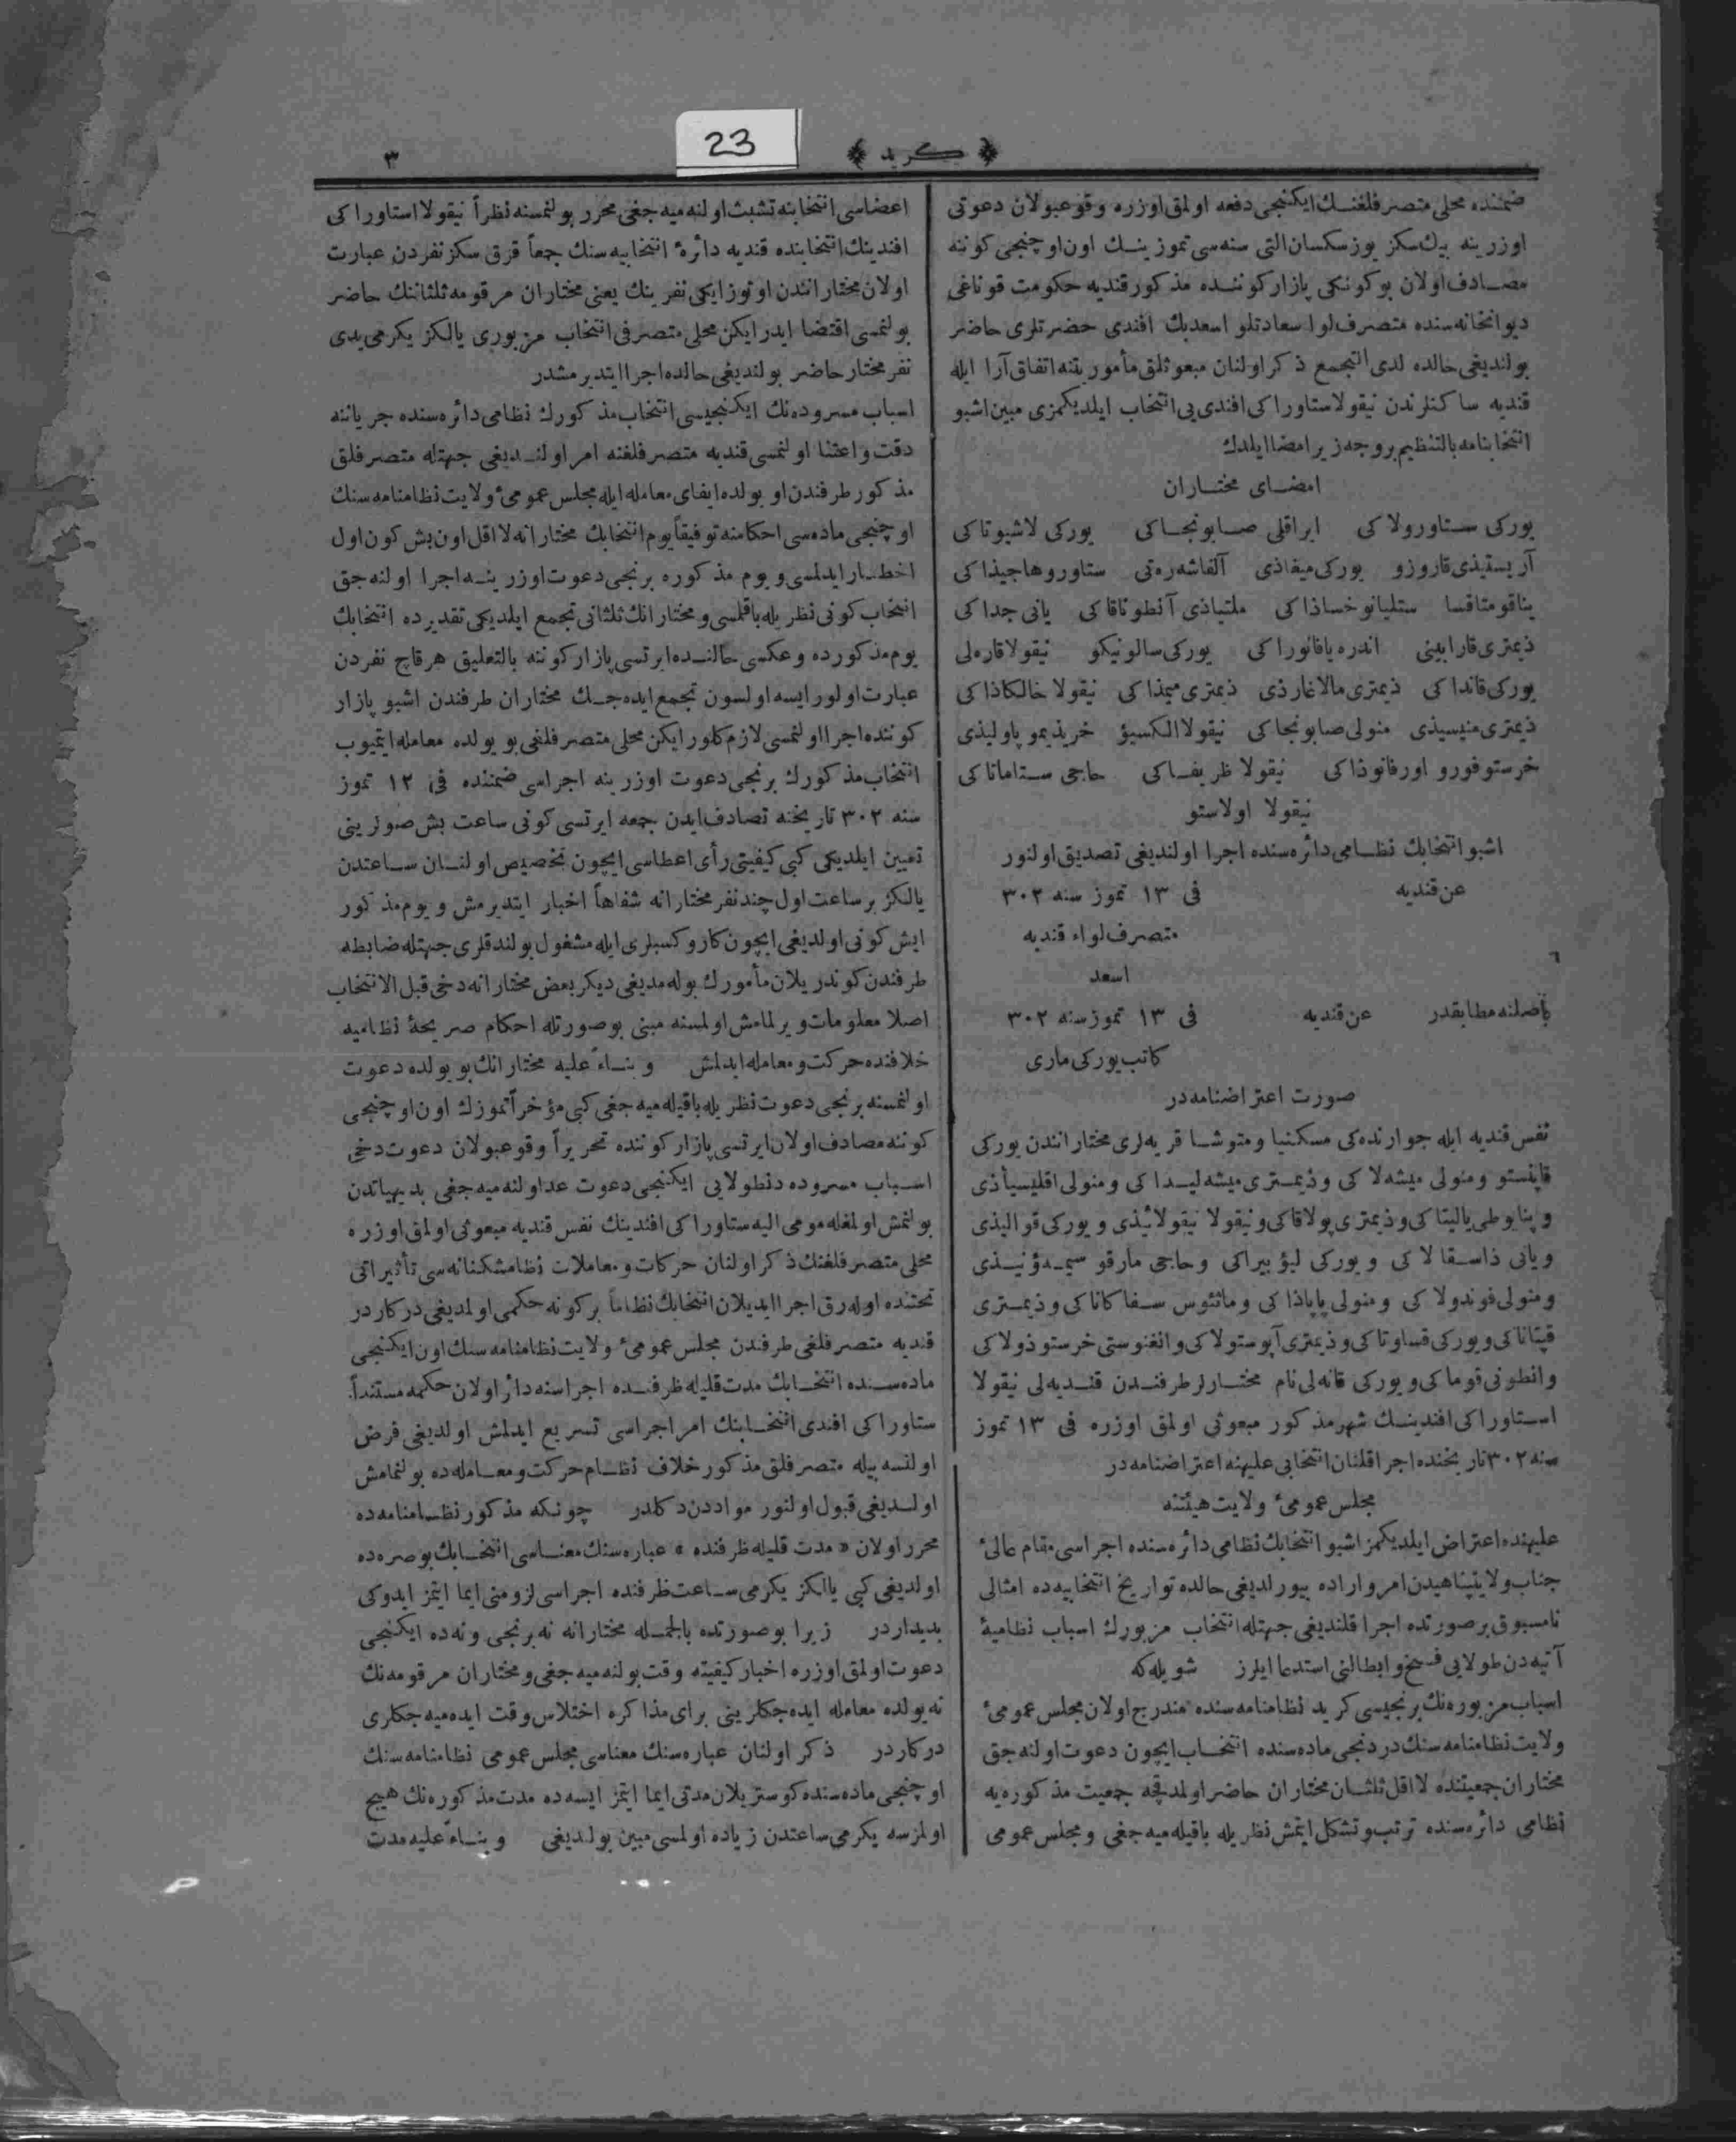 ٣
﴿ كريد ﴾
23
ضمننده محلى متصرفلغنك ايكنجى دفعه اولمق اوزره وقوعبولان دعوتى
اوزرينه بيك سكز يوز سكسان التى سنه سى تموزينك اون اوچنجى كوننه
مصادف اولان بوكونكى پازار كوننده مذكور قنديه حكومت قوناغى
ديوانخانه سنده متصرف لوا سعادتلو اسعد بك افندى حضرتلرى حاضر
بولنديغى حالده لدى التجمع ذكر اولنان مبعوثلق مأموريتنه اتفاق آرا ايله
قنديه ساكنلرندن نيقولا ستاوراكى افندى يى انتخاب ايلديكمزى مبين اشبو
انتخابنامه بالتنظيم بروجه زير امضا ايلدك
امضاى مختاران
يوركى ستاورولاكى ابراقلى صابونجاكى يوركى لاشيوتاكى
آريستيذى قاروزو يوركى ميغاذى آلفاشه رتى ستاورو هاجيذاكى
يناقو متاقسا ستليانو خساذاكى ملتياذى آنطوناقاكى يانى جداكى
ذيمترى قارابينى اندره يافانوراكى يوركى سالونيكو نيقولا قاره لى
يوركى قانداكى ذيمترى مالاغارذى ذيمترى ميمذاكى نيقولا خالكاذاكى
ذيمترى منيسيذى منولى صابونجاكى نيقولا الكسيؤ خريذيمو پاوليذى
خرستوفورو اورفانوذاكى نيقولا ظريفاكى حاجى ستاماتاكى
نيقولا اولاستو
اشبو انتخابك نظامى دائره سنده اجرا اولنديغى تصديق اولنور
عن قنديه فى ١٣ تموز سنه ٣٠٢
متصرف لواء قنديه
اسعد
باصلنه مطابقدر عن قنديه فى ١٣ تموز سنه ٣٠٢
كاتب يوركى مارى
صورت اعتراضنامه در
نفس قنديه ايله جوارنده كى مسكنيا ومتوشا قريه لرى مختارانندن يوركى
قاپنستو ومنولى ميشه لاكى وذيمترى ميشه ليداكى ومنولى اقليسيأذى
وپنايوطى ياليتاكى وذيمترى پولاقاكى ونيقولا نيقولائيذى ويوركى قواليذى
ويانى ذاسقالاكى ويوركى ليؤبيراكى وحاجى مارقو سيمؤنيذى
ومنولى فوندولاكى ومنولى پاپاذاكى وماتئوس سفاكاناكى وذيمترى
قپتاناكى ويوركى قساوتاكى وذيمترى آپوستولاكى وانغنوستى خرستوذولاكى
وانطونى قوماكى ويوركى قانه لى نام مختارلر طرفندن قنديه لى نيقولا
استاوراكى افندينك شهر مذكور مبعوثى اولمق اوزره فى ١٣ تموز
سنه ٣٠٢ تاريخنده اجرا قلنان انتخابى عليهنه اعتراضنامه در
مجلس عمومىٔ ولايت هيئتنه
عليهنده اعتراض ايلديكمز اشبو انتخابك نظامى دائره سنده اجراسى مقام عالىٔ
جناب ولايتپناهيدن امر واراده بيورلديغى حالده تواريخ انتخابيه ده امثالى
نامسبوق بر صورتده اجرا قلنديغى جهتله انتخاب مزبورك اسباب نظاميهٔ
آتيه دن طولايى فسخ وابطالنى استدعا ايلرز شويله كه
اسباب مزبوره نك برنجيسى كريد نظامنامه سنده مندرج اولان مجلس عمومىٔ
ولايت نظامنامه سنك دردنجى ماده سنده انتخاب ايچون دعوت اولنه جق
مختاران جمعيتنده لااقل ثلثان مختاران حاضر اولمدقجه جمعيت مذكوره يه
نظامى دائره سنده ترتب وتشكل ايتمش نظريله باقيله ميه جغى ومجلس عمومى
اعضاسى انتخابنه تشبث اولنه ميه جغى محرر بولنمسنه نظراً نيقولا استاوراكى
افندينك انتخابنده قنديه دائرهٔ انتخابيه سنك جمعاً قرق سكز نفردن عبارت
اولان مختارانندن اوتوز ايكى نفرينك يعنى مختاران مرقومه ثلثاننك حاضر
بولنمسى اقتضا ايدر ايكن محلى متصرفى انتخاب مزبورى يالكز يكرمى يدى
نفر مختار حاضر بولنديغى حالده اجرا ايتديرمشدر
اسباب مسروده نك ايكنجيسى انتخاب مذكورك نظامى دائره سنده جرياننه
دقت واعتنا اولنمسى قنديه متصرفلغنه امر اولنديغى جهتله متصرفلق
مذكور طرفندن او يولده ايفاى معامله ايله مجلس عمومىٔ ولايت نظامنامه سنك
اوچنجى ماده سى احكامنه توفيقاً يوم انتخابك مختارانه لااقل اون بش كون اول
اخطار ايدلمسى ويوم مذكوره برنجى دعوت اوزرينه اجرا اولنه جق
انتخاب كونى نظريله باقلمسى ومختارانك ثلثانى تجمع ايلديكى تقديرده انتخابك
يوم مذكورده وعكسى حالنده ايرتسى پازار كوننه بالتعليق هر قاچ نفردن
عبارت اولور ايسه اولسون تجمع ايده جك مختاران طرفندن اشبو پازار
كوننده اجرا اولنمسى لازم كلور ايكن محلى متصرفلغى بو يولده معامله ايتميوب
انتخاب مذكورك برنجى دعوت اوزرينه اجراسى ضمننده فى ١٢ تموز
سنه ٣٠٢ تاريخنه تصادف ايدن جمعه ايرتسى كونى ساعت بش صولرينى
تعيين ايلديكى كبى كيفيتى رأى اعطاسى ايچون تخصيص اولنان ساعتدن
يالكز بر ساعت اول چند نفر مختارانه شفاهاً اخبار ايتديرمش ويوم مذكور
ايش كونى اولديغى ايچون كار وكسبلرى ايله مشغول بولندقلرى جهتله ضابطه
طرفندن كوندريلان مأمورك بوله مديغى ديكر بعض مختارانه دخى قبل الانتخاب
اصلا معلومات ويرلمامش اولمسنه مبنى بو صورتله احكام صريحهٔ نظاميه
خلافنده حركت ومعامله ايدلمش وبناءً عليه مختارانك بو يولده دعوت
اولنمسنه برنجى دعوت نظريله باقيله ميه جغى كبى مؤخراً تموزك اون اوچنجى
كوننه مصادف اولان ايرتسى پازار كوننده تحريراً وقوعبولان دعوت دخى
اسباب مسروده دن طولايى ايكنجى دعوت عد اولنه ميه جغى بديهياتدن
بولنمش اولمغله مومى اليه ستاوراكى افندينك نفس قنديه مبعوثى اولمق اوزره
محلى متصرفلغنك ذكر اولنان حركات ومعاملات نظامشكنانه سى تأثيراتى
تحتنده اوله رق اجرا ايديلان انتخابك نظاماً بركونه حكمى اولمديغى دركاردر
قنديه متصرفلغى طرفندن مجلس عمومىٔ ولايت نظامنامه سنك اون ايكنجى
ماده سنده انتخابك مدت قليله ظرفنده اجراسنه دائر اولان حكمه مستنداً
ستاوراكى افندى انتخابنك امر اجراسى تسريع ايدلمش اولديغى فرض
اولنسه بيله متصرفلق مذكور خلاف نظام حركت ومعامله ده بولنمامش
اولديغى قبول اولنور مواددن دكلدر چونكه مذكور نظامنامه ده
محرر اولان « مدت قليله ظرفنده » عباره سنك معناسى انتخابك بو صره ده
اولديغى كبى يالكز يكرمى ساعت ظرفنده اجراسى لزومنى ايما ايتمز ايدوكى
بديداردر زيرا بو صورتده بالجمله مختارانه نه برنجى ونه ده ايكنجى
دعوت اولمق اوزره اخبار كيفيته وقت بولنه ميه جغى ومختاران مرقومه نك
نه يولده معامله ايده جكلرينى براى مذاكره اختلاس وقت ايده ميه جكلرى
دركاردر ذكر اولنان عباره سنك معناسى مجلس عمومى نظامنامه سنك
اوچنجى ماده سنده كوستريلان مدتى ايما ايتمز ايسه ده مدت مذكوره نك هيچ
اولمزسه يكرمى ساعتدن زياده اولمسى مبين بولديغى وبناءً عليه مدت